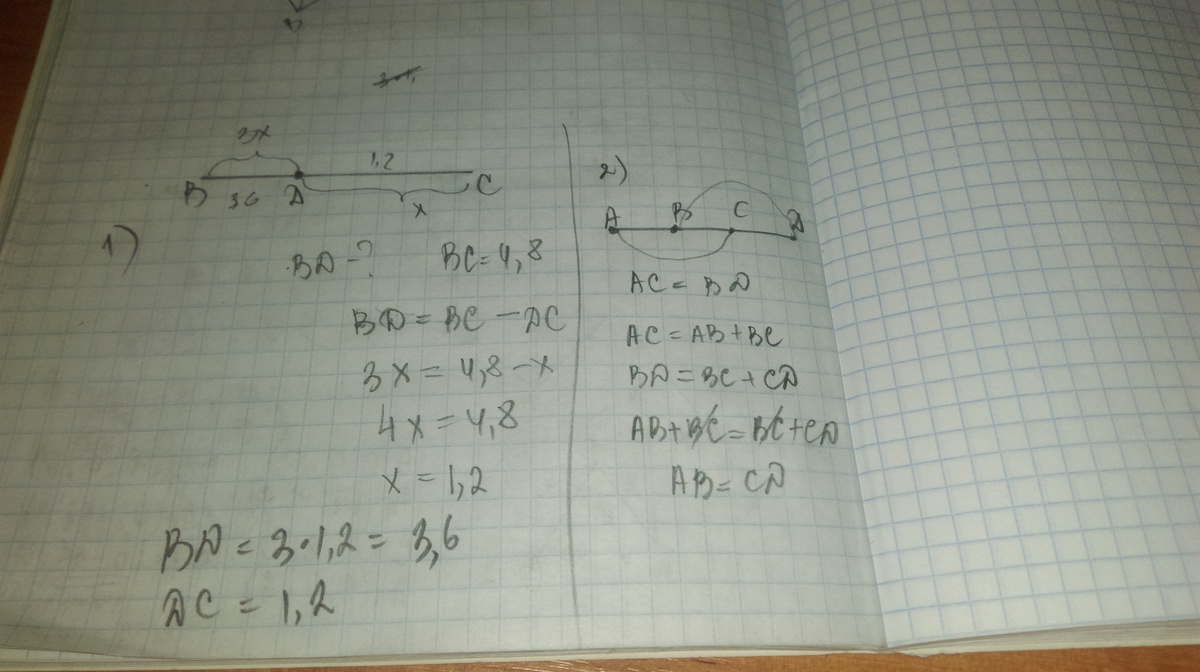 D
3x
1,2
B 36 D C
x
1)
BD - ? BC = 4,8
BD = BC - DC
3x = 4,8 - x
4x = 4,8
x = 1,2
BD = 3 · 1,2 = 3,6
DC = 1,2
2)
A B C D
AC = BD
AC = AB + BC
BD = BC + CD
AB + BC = BC + CD
AB = CD